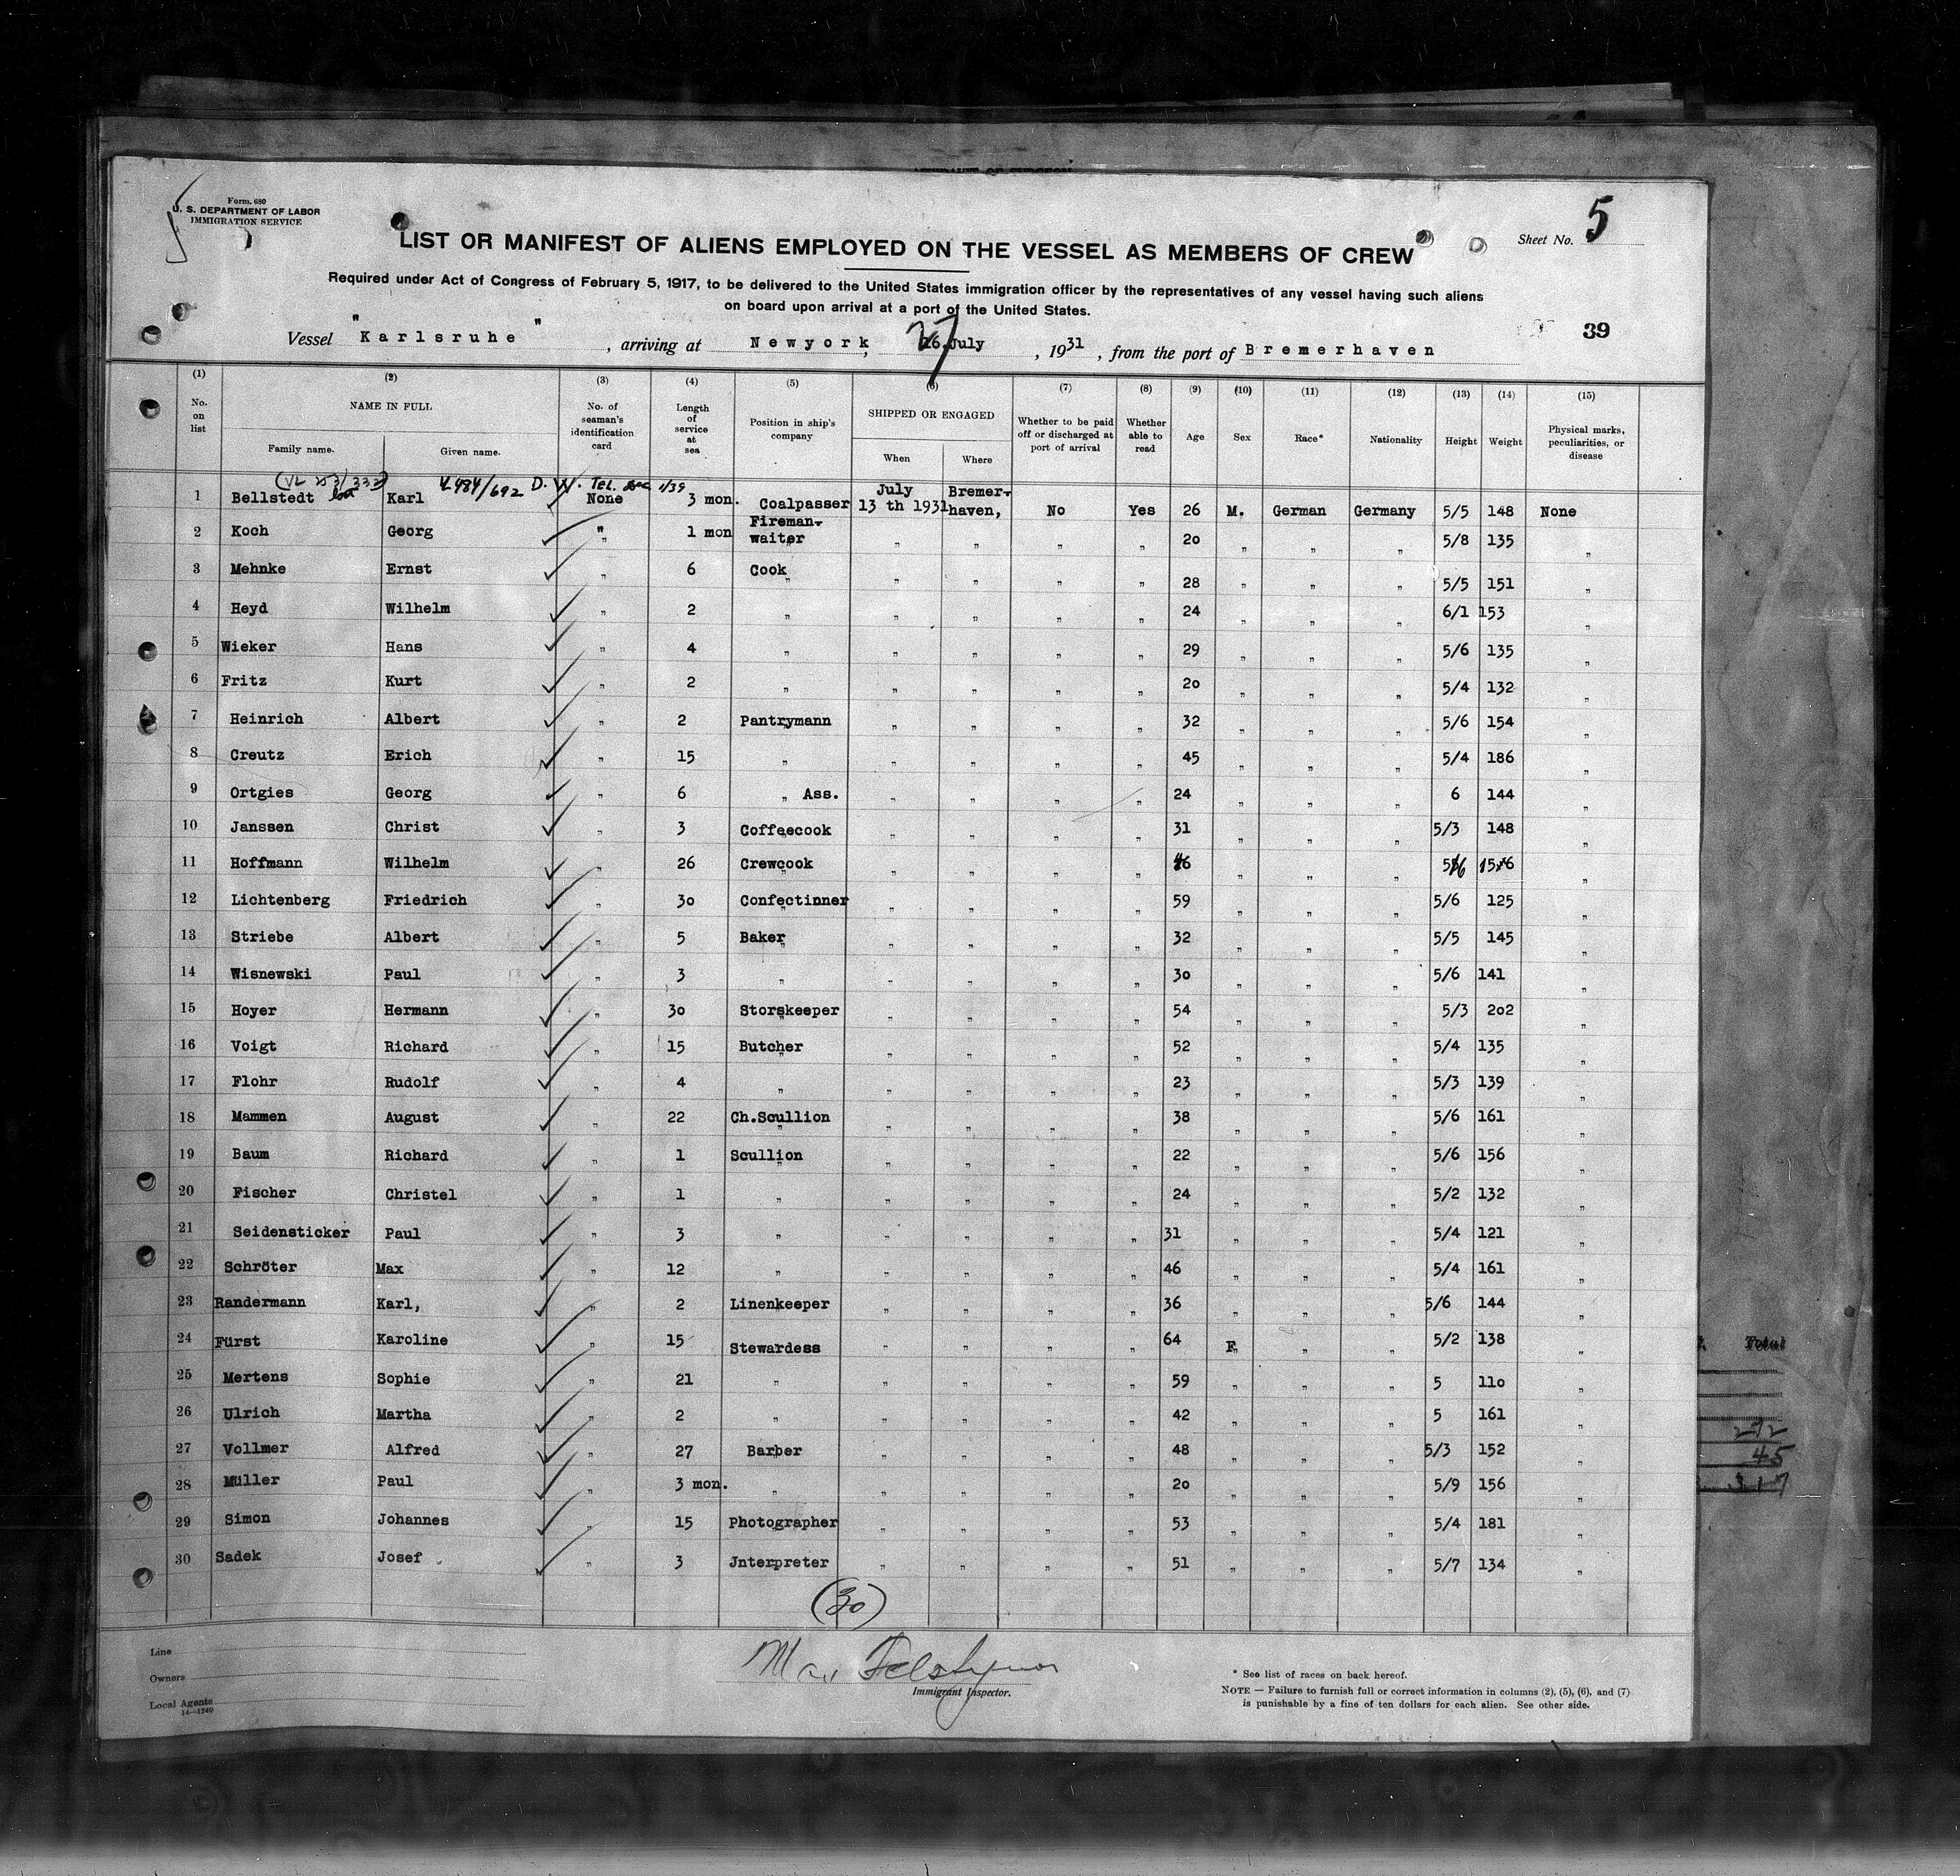 Form. 680
U. S. DEPARTMENT OF LABOR
IMMIGRATION SERVICE
Sheet No. 5
LIST OR MANIFEST OF ALIENS EMPLOYED ON THE VESSEL AS MEMBERS OF CREW
Required under Act of Congress of February 5, 1917, to be delivered to the United States immigration officer by the representatives of any vessel having such aliens
on board upon arrival at a port of the United States.
39
Vessel "Karlsruhe", arriving at Newyork, 27 July, 1931, from the port of Bremerhaven
(1) No. on list (2) NAME IN FULL Family name. Given name. (3) No. of seaman's identification card (4) Length of service at sea (5) Position in ship's company (6) SHIPPED OR ENGAGED When Where (7) Whether to be paid off or discharged at port of arrival (8) Whether able to read (9) Age (10) Sex (11) Race* (12) Nationality (13) Height (14) Weight (15) Physical marks, peculiarities, or disease
1 Bellstedt Karl None 3 mon. Coalpasser July 13 th 1931 Bremerhaven, No Yes 26 M. German Germany 5/5 148 None
2 Koch Georg " 1 mon Fireman-waiter " " " " 20 " " " 5/8 135 "
3 Mehnke Ernst " 6 Cook " " " " 28 " " " 5/5 151 "
4 Heyd Wilhelm " 2 " " " " " 24 " " " 6/1 153 "
5 Wieker Hans " 4 " " " " " 29 " " " 5/6 135 "
6 Fritz Kurt " 2 " " " " " 20 " " " 5/4 132 "
7 Heinrich Albert " 2 Pantrymann " " " " 32 " " " 5/6 154 "
8 Creutz Erich " 15 " " " " " 45 " " " 5/4 186 "
9 Ortgies Georg " 6 " Ass. " " " " 24 " " " 6 144 "
10 Janssen Christ " 3 Coffeecook " " " " 31 " " " 5/3 148 "
11 Hoffmann Wilhelm " 26 Crewcook " " " " 46 " " " 5/6 156 "
12 Lichtenberg Friedrich " 30 Confectinner " " " " 59 " " " 5/6 125 "
13 Striebe Albert " 5 Baker " " " " 32 " " " 5/5 145 "
14 Wisnewski Paul " 3 " " " " " 30 " " " 5/6 141 "
15 Hoyer Hermann " 30 Storskeeper " " " " 54 " " " 5/3 202 "
16 Voigt Richard " 15 Butcher " " " " 52 " " " 5/4 135 "
17 Flohr Rudolf " 4 " " " " " 23 " " " 5/3 139 "
18 Mammen August " 22 Ch.Scullion " " " " 38 " " " 5/6 161 "
19 Baum Richard " 1 Scullion " " " " 22 " " " 5/6 156 "
20 Fischer Christel " 1 " " " " " 24 " " " 5/2 132 "
21 Seidensticker Paul " 3 " " " " " 31 " " " 5/4 121 "
22 Schröter Max " 12 " " " " " 46 " " " 5/4 161 "
23 Randermann Karl, " 2 Linenkeeper " " " " 36 " " " 5/6 144 "
24 Fürst Karoline " 15 Stewardess " " " " 64 F. " " 5/2 138 "
25 Mertens Sophie " 21 " " " " " 59 " " " 5 110 "
26 Ulrich Martha " 2 " " " " " 42 " " " 5 161 "
27 Vollmer Alfred " 27 Barber " " " " 48 " " " 5/3 152 "
28 Müller Paul " 3 mon. " " " " " 20 " " " 5/9 156 "
29 Simon Johannes " 15 Photographer " " " " 53 " " " 5/4 181 "
30 Sadek Josef " 3 Jnterpreter " " " " 51 " " " 5/7 134 "
(30)
Total
272
45
317
Line
Owners
Local Agents
14—1240
Max
Immigrant Inspector.
* See list of races on back hereof.
NOTE — Failure to furnish full or correct information in columns (2), (5), (6), and (7)
is punishable by a fine of ten dollars for each alien. See other side.